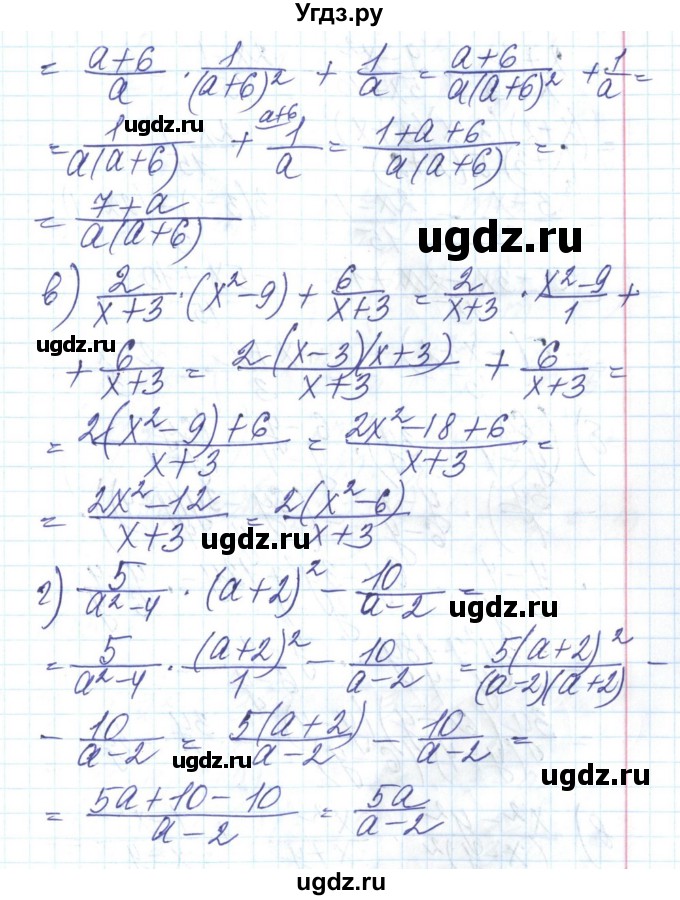 Угдз.ру
= (a+6)/a · 1/(a+6)² + 1/a = (a+6)/(a(a+6)²) + 1/a =
ugdz.ru
= 1/(a(a+6)) + 1/a ^(a+6) = (1+a+6)/(a(a+6)) =
= (7+a)/(a(a+6))
ugdz.ru
в) 2/(x+3) · (x²-9) + 6/(x+3) = 2/(x+3) · (x²-9)/1 +
ugdz.ru
+ 6/(x+3) = 2(x-3)(x+3)/(x+3) + 6/(x+3) =
= (2(x²-9)+6)/(x+3) = (2x²-18+6)/(x+3) =
= (2x²-12)/(x+3) = 2(x²-6)/(x+3)
ugdz.ru
г) 5/(a²-4) · (a+2)² - 10/(a-2) =
= 5/(a²-4) · (a+2)²/1 - 10/(a-2) = 5(a+2)²/((a-2)(a+2)) -
- 10/(a-2) = 5(a+2)/(a-2) - 10/(a-2) =
ugdz.ru
ugdz.ru
= (5a+10-10)/(a-2) = 5a/(a-2)
ugdz.ru